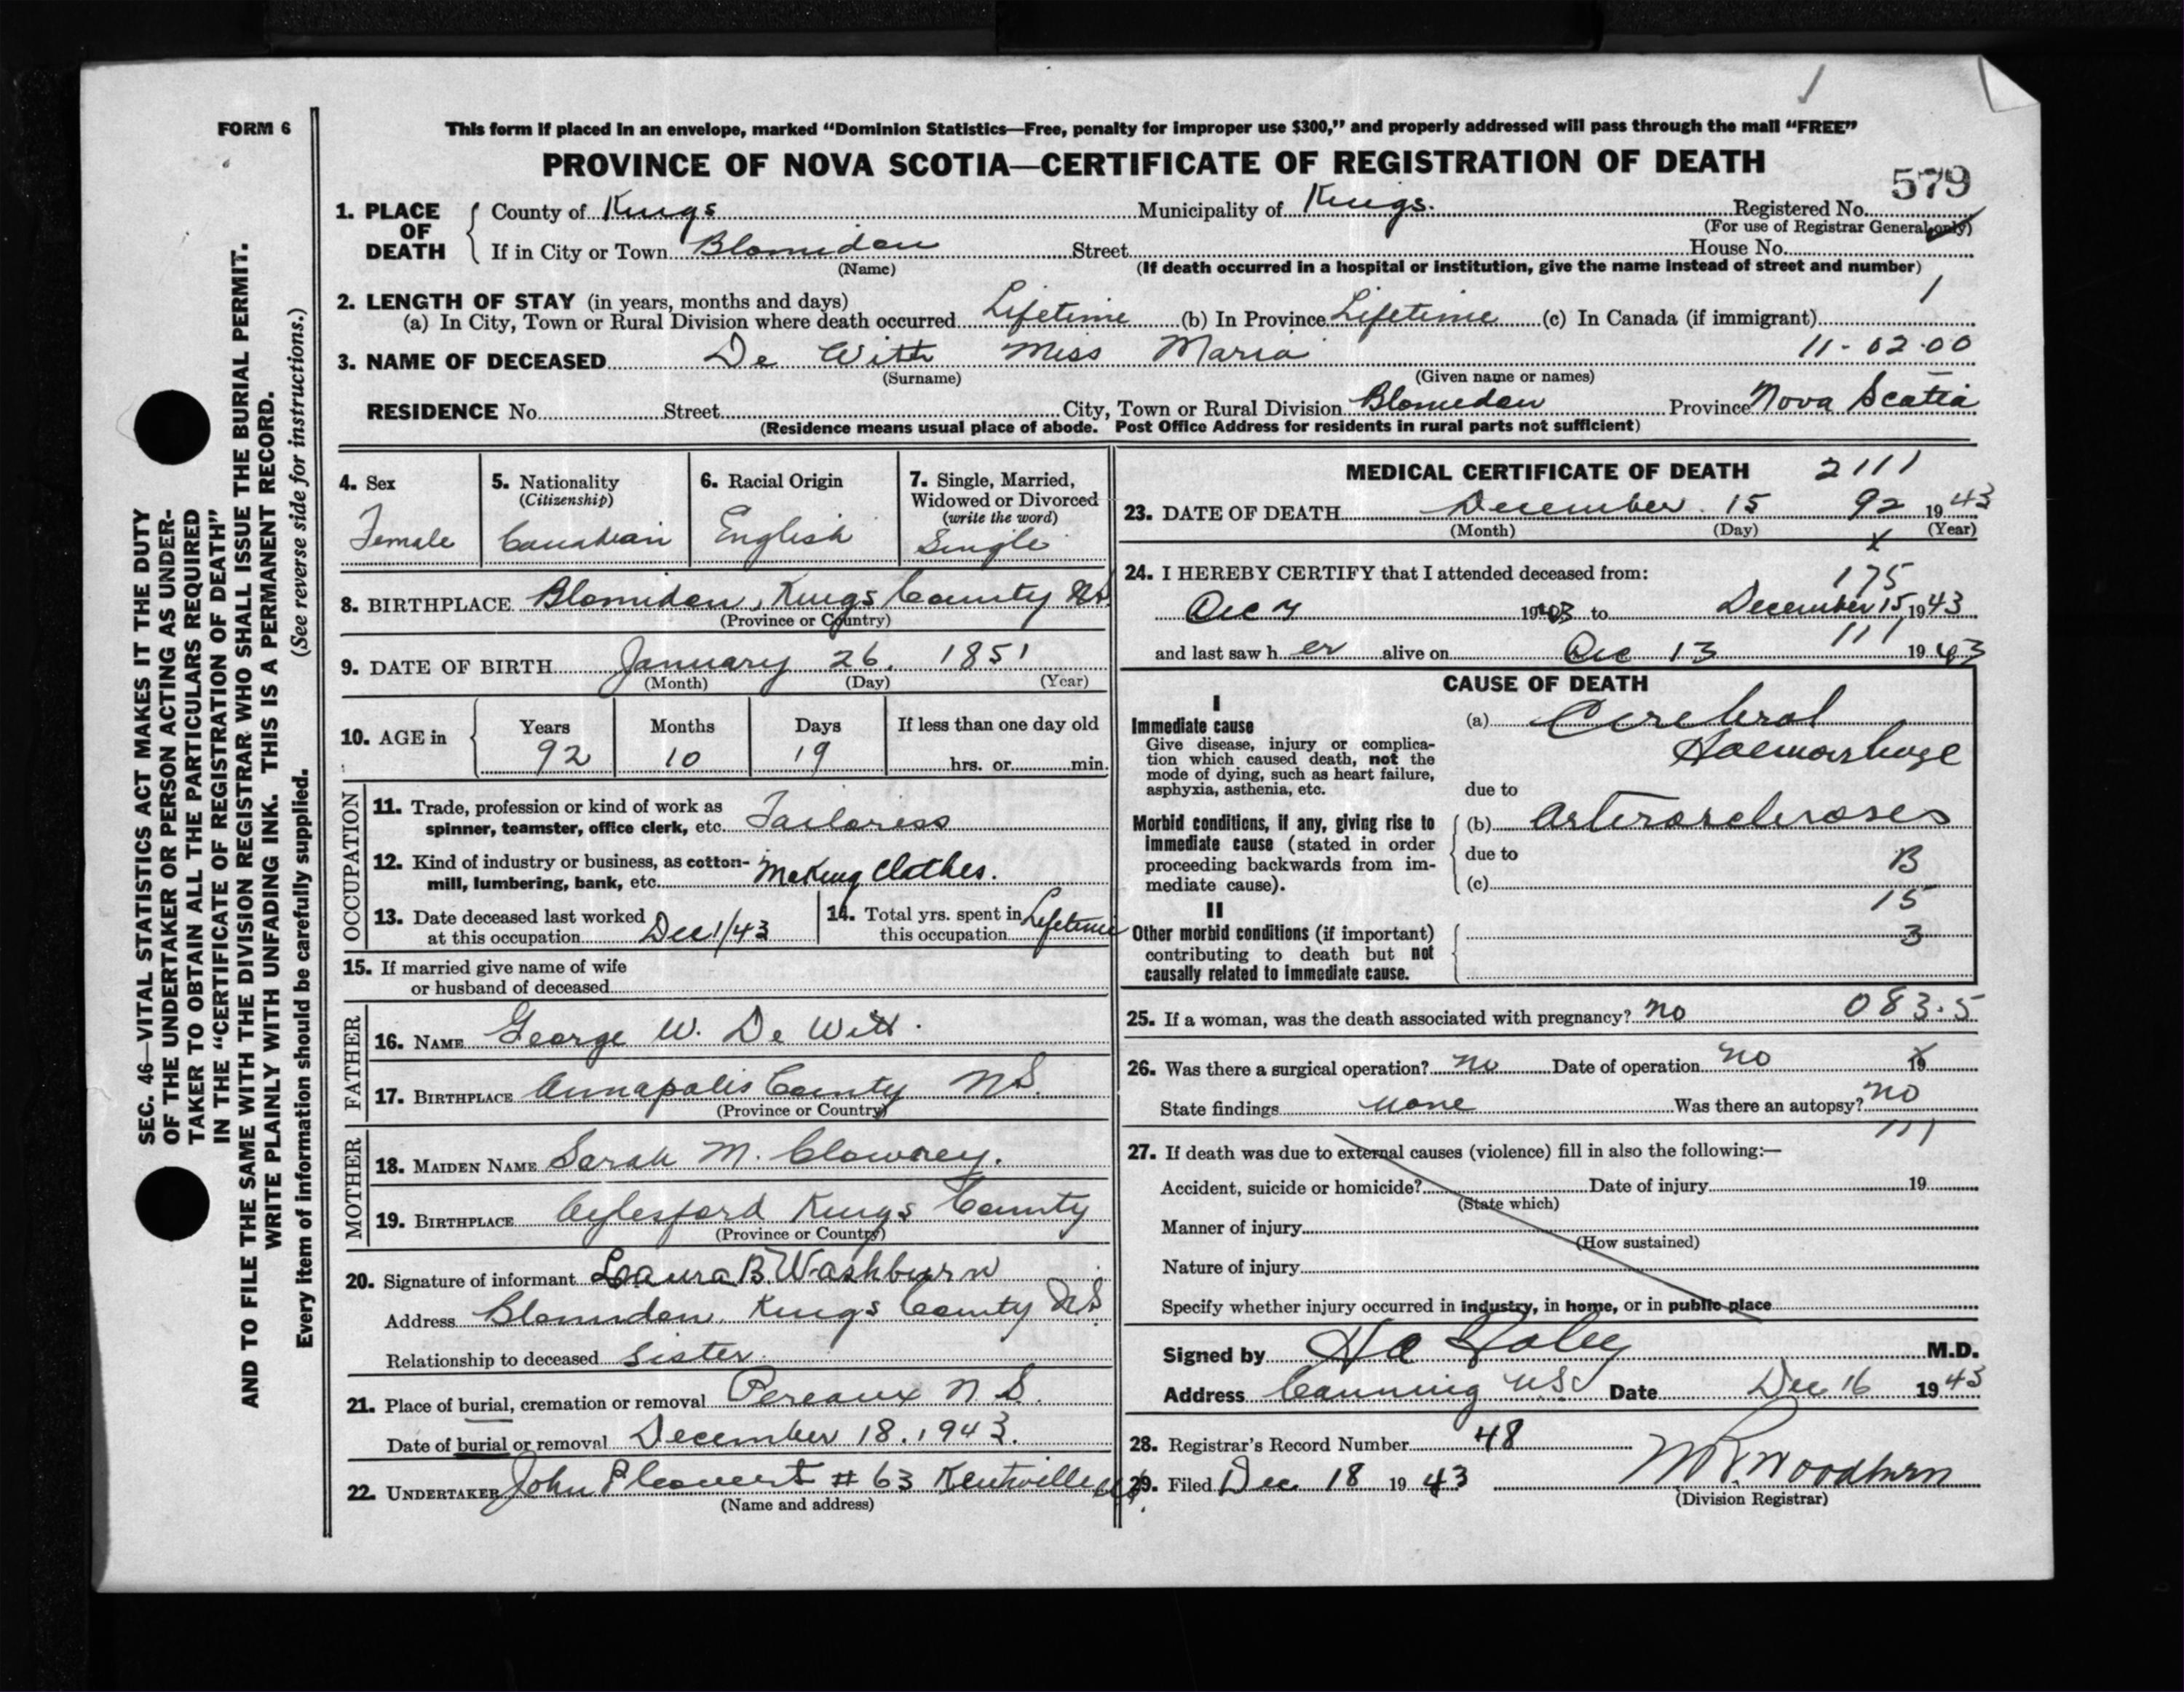 FORM 6
This form if placed in an envelope, marked “Dominion Statistics—Free, penalty for improper use $300,” and properly addressed will pass through the mail “FREE”
PROVINCE OF NOVA SCOTIA—CERTIFICATE OF REGISTRATION OF DEATH
579
1. PLACE OF DEATH
County of Kings Municipality of Kings. Registered No.
(For use of Registrar General only)
If in City or Town Blomidon Street House No.
(Name) (If death occurred in a hospital or institution, give the name instead of street and number)
2. LENGTH OF STAY (in years, months and days) 1
(a) In City, Town or Rural Division where death occurred Lifetime (b) In Province Lifetime (c) In Canada (if immigrant)
3. NAME OF DECEASED De Witt Miss Maria 11-02-00
(Surname) (Given name or names)
RESIDENCE No. Street City, Town or Rural Division Blomidon Province Nova Scotia
(Residence means usual place of abode. Post Office Address for residents in rural parts not sufficient)
4. Sex
Female
5. Nationality
(Citizenship)
Canadian
6. Racial Origin
English
7. Single, Married,
Widowed or Divorced
(write the word)
Single
8. BIRTHPLACE Blomidon, Kings County NS
(Province or Country)
9. DATE OF BIRTH January 26. 1851
(Month) (Day) (Year)
10. AGE in
Years Months Days If less than one day old
92 10 19 hrs. or min.
OCCUPATION
11. Trade, profession or kind of work as
spinner, teamster, office clerk, etc. Tailoress
12. Kind of industry or business, as cotton-
mill, lumbering, bank, etc. Making Clothes.
13. Date deceased last worked
at this occupation Dec 1/43
14. Total yrs. spent in
this occupation Lifetime
15. If married give name of wife
or husband of deceased
FATHER
16. NAME George W. De Witt.
17. BIRTHPLACE Annapolis County NS.
(Province or Country)
MOTHER
18. MAIDEN NAME Sarah M.
19. BIRTHPLACE Aylesford Kings County
(Province or Country)
20. Signature of informant Laura B. Washburn
Address Blomidon. Kings County NS.
Relationship to deceased Sister.
21. Place of burial, cremation or removal Pereaux N.S.
Date of burial or removal December 18. 1943.
22. UNDERTAKER John # 63 Kentville NS.
(Name and address)
MEDICAL CERTIFICATE OF DEATH 2111
23. DATE OF DEATH December. 15 92 1943
(Month) (Day) x (Year)
24. I HEREBY CERTIFY that I attended deceased from:
175
Dec 7 1943 to December 15, 1943
111
and last saw her alive on Dec 13 1943
CAUSE OF DEATH
I
Immediate cause
Give disease, injury or complica-
tion which caused death, not the
mode of dying, such as heart failure,
asphyxia, asthenia, etc.
(a) Cerebral
Haemorrhage
due to
Morbid conditions, if any, giving rise to
immediate cause (stated in order
proceeding backwards from im-
mediate cause).
(b) Arterosclerosis
due to B
(c)
15
II
Other morbid conditions (if important)
contributing to death but not
causally related to immediate cause.
3
25. If a woman, was the death associated with pregnancy? no 083.5
26. Was there a surgical operation? no Date of operation no 19
State findings none Was there an autopsy? no
111
27. If death was due to external causes (violence) fill in also the following:—
Accident, suicide or homicide? Date of injury 19
(State which)
Manner of injury
(How sustained)
Nature of injury
Specify whether injury occurred in industry, in home, or in public place
Signed by M.D.
Address Canning NS. Date Dec 16 1943
28. Registrar's Record Number 48
29. Filed Dec. 18 1943 Woodburn
(Division Registrar)
SEC. 46—VITAL STATISTICS ACT MAKES IT THE DUTY
OF THE UNDERTAKER OR PERSON ACTING AS UNDER-
TAKER TO OBTAIN ALL THE PARTICULARS REQUIRED
IN THE “CERTIFICATE OF REGISTRATION OF DEATH”
AND TO FILE THE SAME WITH THE DIVISION REGISTRAR WHO SHALL ISSUE THE BURIAL PERMIT.
WRITE PLAINLY WITH UNFADING INK. THIS IS A PERMANENT RECORD.
Every item of information should be carefully supplied. (See reverse side for instructions.)